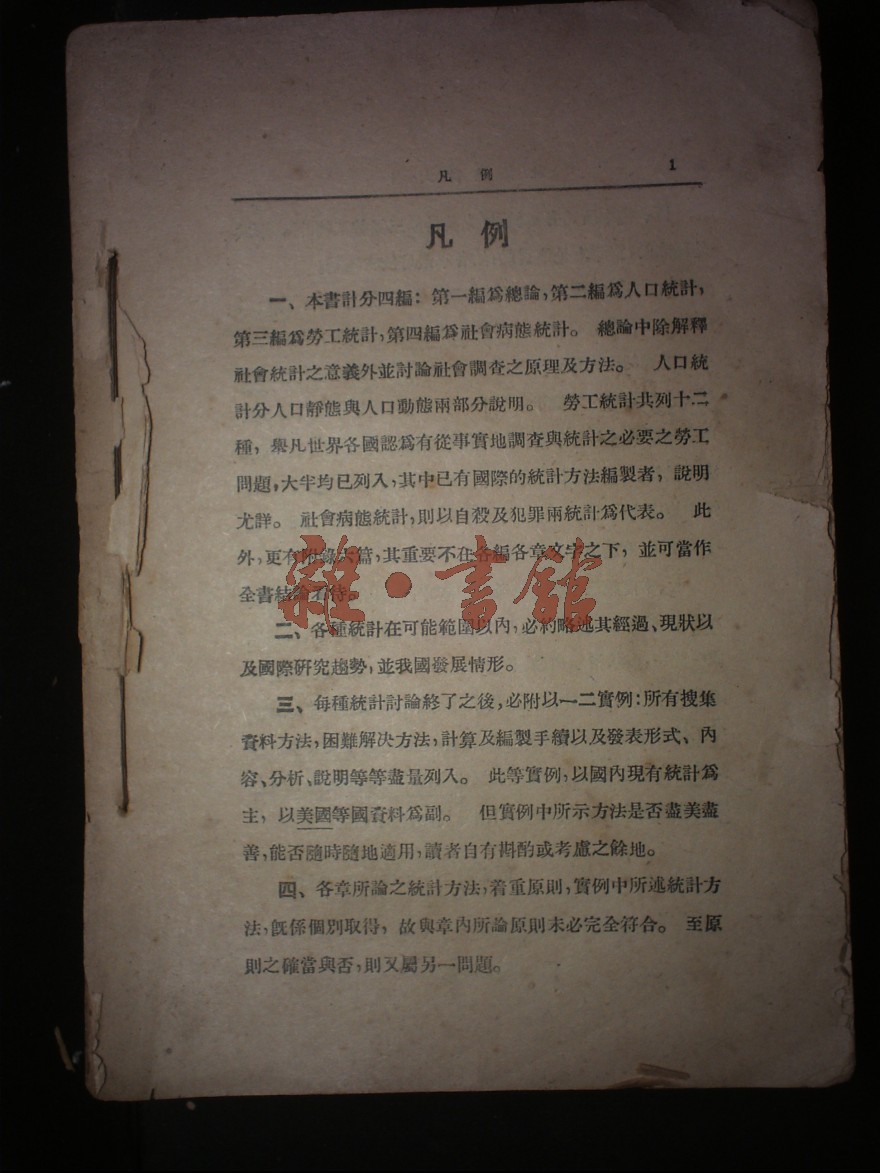 凡 例 1
凡 例
一、本書計分四編：第一編爲總論，第二編爲人口統計，
第三編爲勞工統計，第四編爲社會病態統計。 總論中除解釋
社會統計之意義外並討論社會調查之原理及方法。 人口統
計分人口靜態與人口動態兩部分說明。 勞工統計共列十二
種，舉凡世界各國認爲有從事實地調查與統計之必要之勞工
問題，大半均已列入，其中已有國際的統計方法編製者，說明
尤詳。 社會病態統計，則以自殺及犯罪兩統計爲代表。 此
外，更有附錄六篇，其重要不在各編各章文字之下，並可當作
全書結論看待。
雜·書館
二、各種統計在可能範圍以內，必約略述其經過、現狀以
及國際研究趨勢，並我國發展情形。
三、每種統計討論終了之後，必附以一二實例：所有搜集
資料方法，困難解决方法，計算及編製手續以及發表形式、內
容、分析、說明等等盡量列入。 此等實例，以國內現有統計爲
主，以美國等國資料爲副。 但實例中所示方法是否盡美盡
善，能否隨時隨地適用，讀者自有斟酌或考慮之餘地。
四、各章所論之統計方法，着重原則，實例中所述統計方
法，旣係個別取得，故與章內所論原則未必完全符合。 至原
則之確當與否，則又屬另一問題。